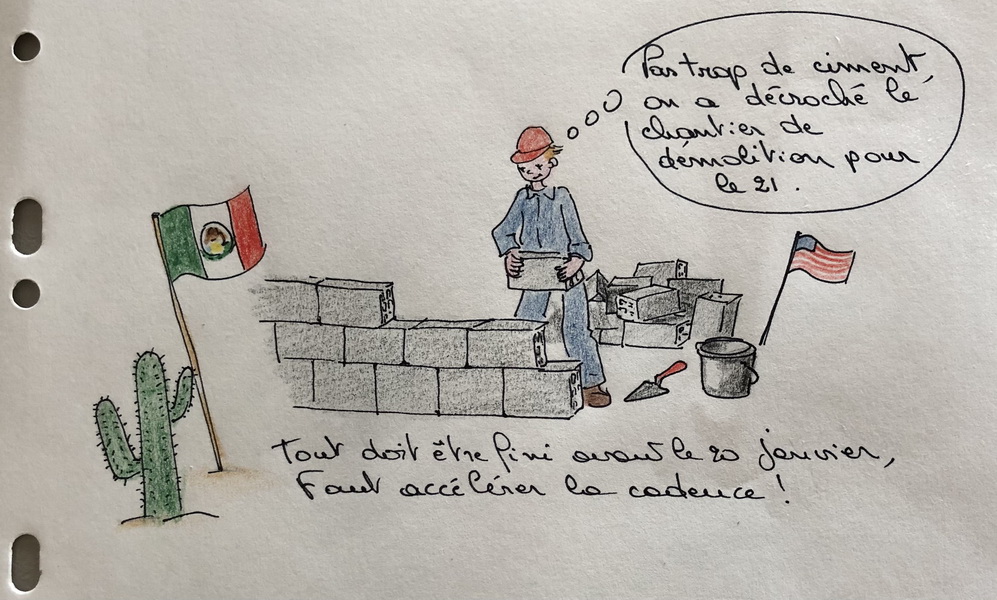 Pas trop de ciment,
on a décroché le
chantier de
démolition pour
le 21.
Tout doit être fini avant le 20 janvier,
Faut accélérer la cadence !